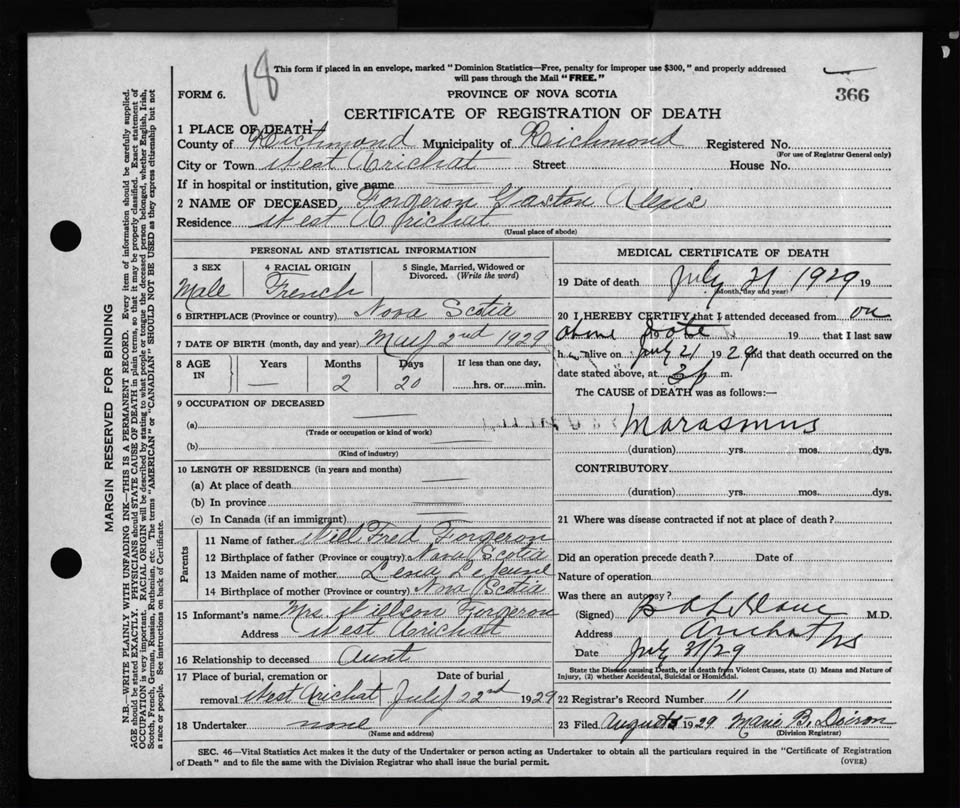 18
This form if placed in an envelope, marked "Dominion Statistics—Free, penalty for improper use $300," and properly addressed
will pass through the Mail "FREE."
366
FORM 6.
PROVINCE OF NOVA SCOTIA
CERTIFICATE OF REGISTRATION OF DEATH
1 PLACE OF DEATH
County of Richmond Municipality of Richmond Registered No.
(For use of Registrar General only)
City or Town West Arichat Street House No.
If in hospital or institution, give name
2 NAME OF DECEASED Forgeron Gaston Alexis
Residence West Arichat
(Usual place of abode)
PERSONAL AND STATISTICAL INFORMATION
3 SEX 4 RACIAL ORIGIN 5 Single, Married, Widowed or
Divorced. (Write the word)
Male French
6 BIRTHPLACE (Province or country) Nova Scotia
7 DATE OF BIRTH (month, day and year) May 2nd 1929
8 AGE Years Months Days If less than one day,
IN — 2 20 hrs. or min.
9 OCCUPATION OF DECEASED
(a)
(Trade or occupation or kind of work)
(b)
(Kind of industry)
10 LENGTH OF RESIDENCE (in years and months)
(a) At place of death
(b) In province
(c) In Canada (if an immigrant)
Parents
11 Name of father Will Fred Forgeron
12 Birthplace of father (Province or country) Nova Scotia
13 Maiden name of mother Lena LeJeune
14 Birthplace of mother (Province or country) Nova Scotia
15 Informant's name Mrs. Forgeron
Address West Arichat
16 Relationship to deceased Aunt
17 Place of burial, cremation or Date of burial
removal West Arichat July 22nd 1929
18 Undertaker none
(Name and address)
MEDICAL CERTIFICATE OF DEATH
19 Date of death July 21 1929 19
(Month, day and year)
20 I HEREBY CERTIFY that I attended deceased from on
above date 19 that I last saw
h alive on July 21 1929 and that death occurred on the
date stated above, at 3 p m.
The CAUSE of DEATH was as follows:—
Marasmus
(duration) yrs. mos. dys.
CONTRIBUTORY
(duration) yrs. mos. dys.
21 Where was disease contracted if not at place of death?
Did an operation precede death? Date of
Nature of operation
Was there an autopsy?
(Signed) LeBlanc M.D.
Address Arichat NS
Date July 31/29
State the Disease causing Death, or is death from Violent Causes, state (1) Means and Nature of
Injury, (2) whether Accidental, Suicidal or Homicidal.
22 Registrar's Record Number 11
23 Filed August 1929 Marie B. Doiron
(Division Registrar)
SEC. 46—Vital Statistics Act makes it the duty of the Undertaker or person acting as Undertaker to obtain all the particulars required in the "Certificate of Registration
of Death" and to file the same with the Division Registrar who shall issue the burial permit.
(OVER)
MARGIN RESERVED FOR BINDING
N.B.—WRITE PLAINLY WITH UNFADING INK—THIS IS A PERMANENT RECORD. Every item of information should be carefully supplied.
AGE should be stated EXACTLY. PHYSICIANS should STATE CAUSE OF DEATH in plain terms, so that it may be properly classified. Exact statement of
OCCUPATION is very important. RACIAL ORIGIN will be described by stating to what people or tongue the deceased person belonged, whether English, Irish,
Scotch, French, German, Russian, Ruthenian, etc. The terms "AMERICAN" or "CANADIAN" SHOULD NOT BE USED as they express citizenship but not
a race or people. See instructions on back of Certificate.